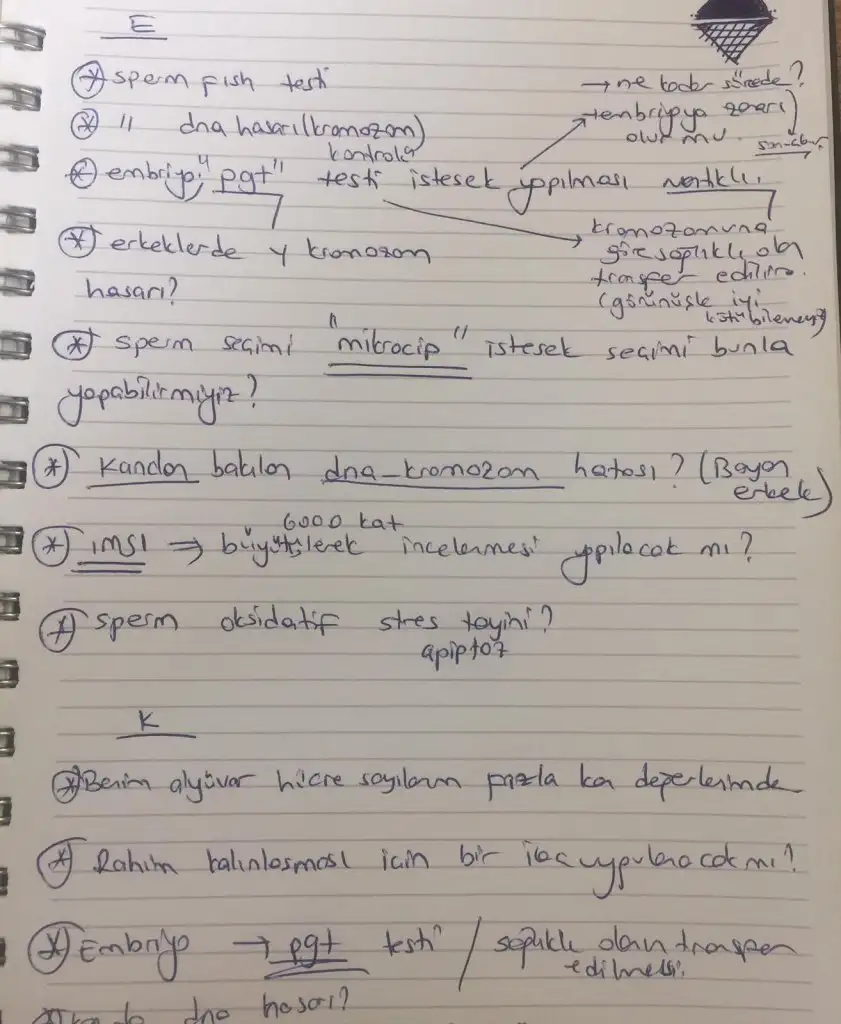 E
* sperm fish testi
* " dna hasarı (kromozom)
kontrolü
→ ne kadar sürede?
→ embriyoya zararı
olur mu.
* embriyo, "pgt" testi istesek yapılması
kromozomuna
göre sağlıklı olan
transfer edilir.
(görünüşle iyi
* erkeklerde y kromozom
hasarı?
* sperm seçimi "mikrocip" istesek seçimi bunla
yapabilirmiyiz?
* Kandan bakılan dna-kromozom hatası? (Bayan
erkek)
6000 kat
* imsi ⇒ büyütülerek incelenmesi yapılacak mı?
* sperm oksidatif stres tayini?
apiptoz
K
* Benim alyuvar hücre sayılarım fazla kan değerlerimde
* Rahim kalınlaşması için bir ilaç uygulanacak mı?
* Embriyo → pgt testi / sağlıklı olanın transfer
edilmesi.
dna hasarı?